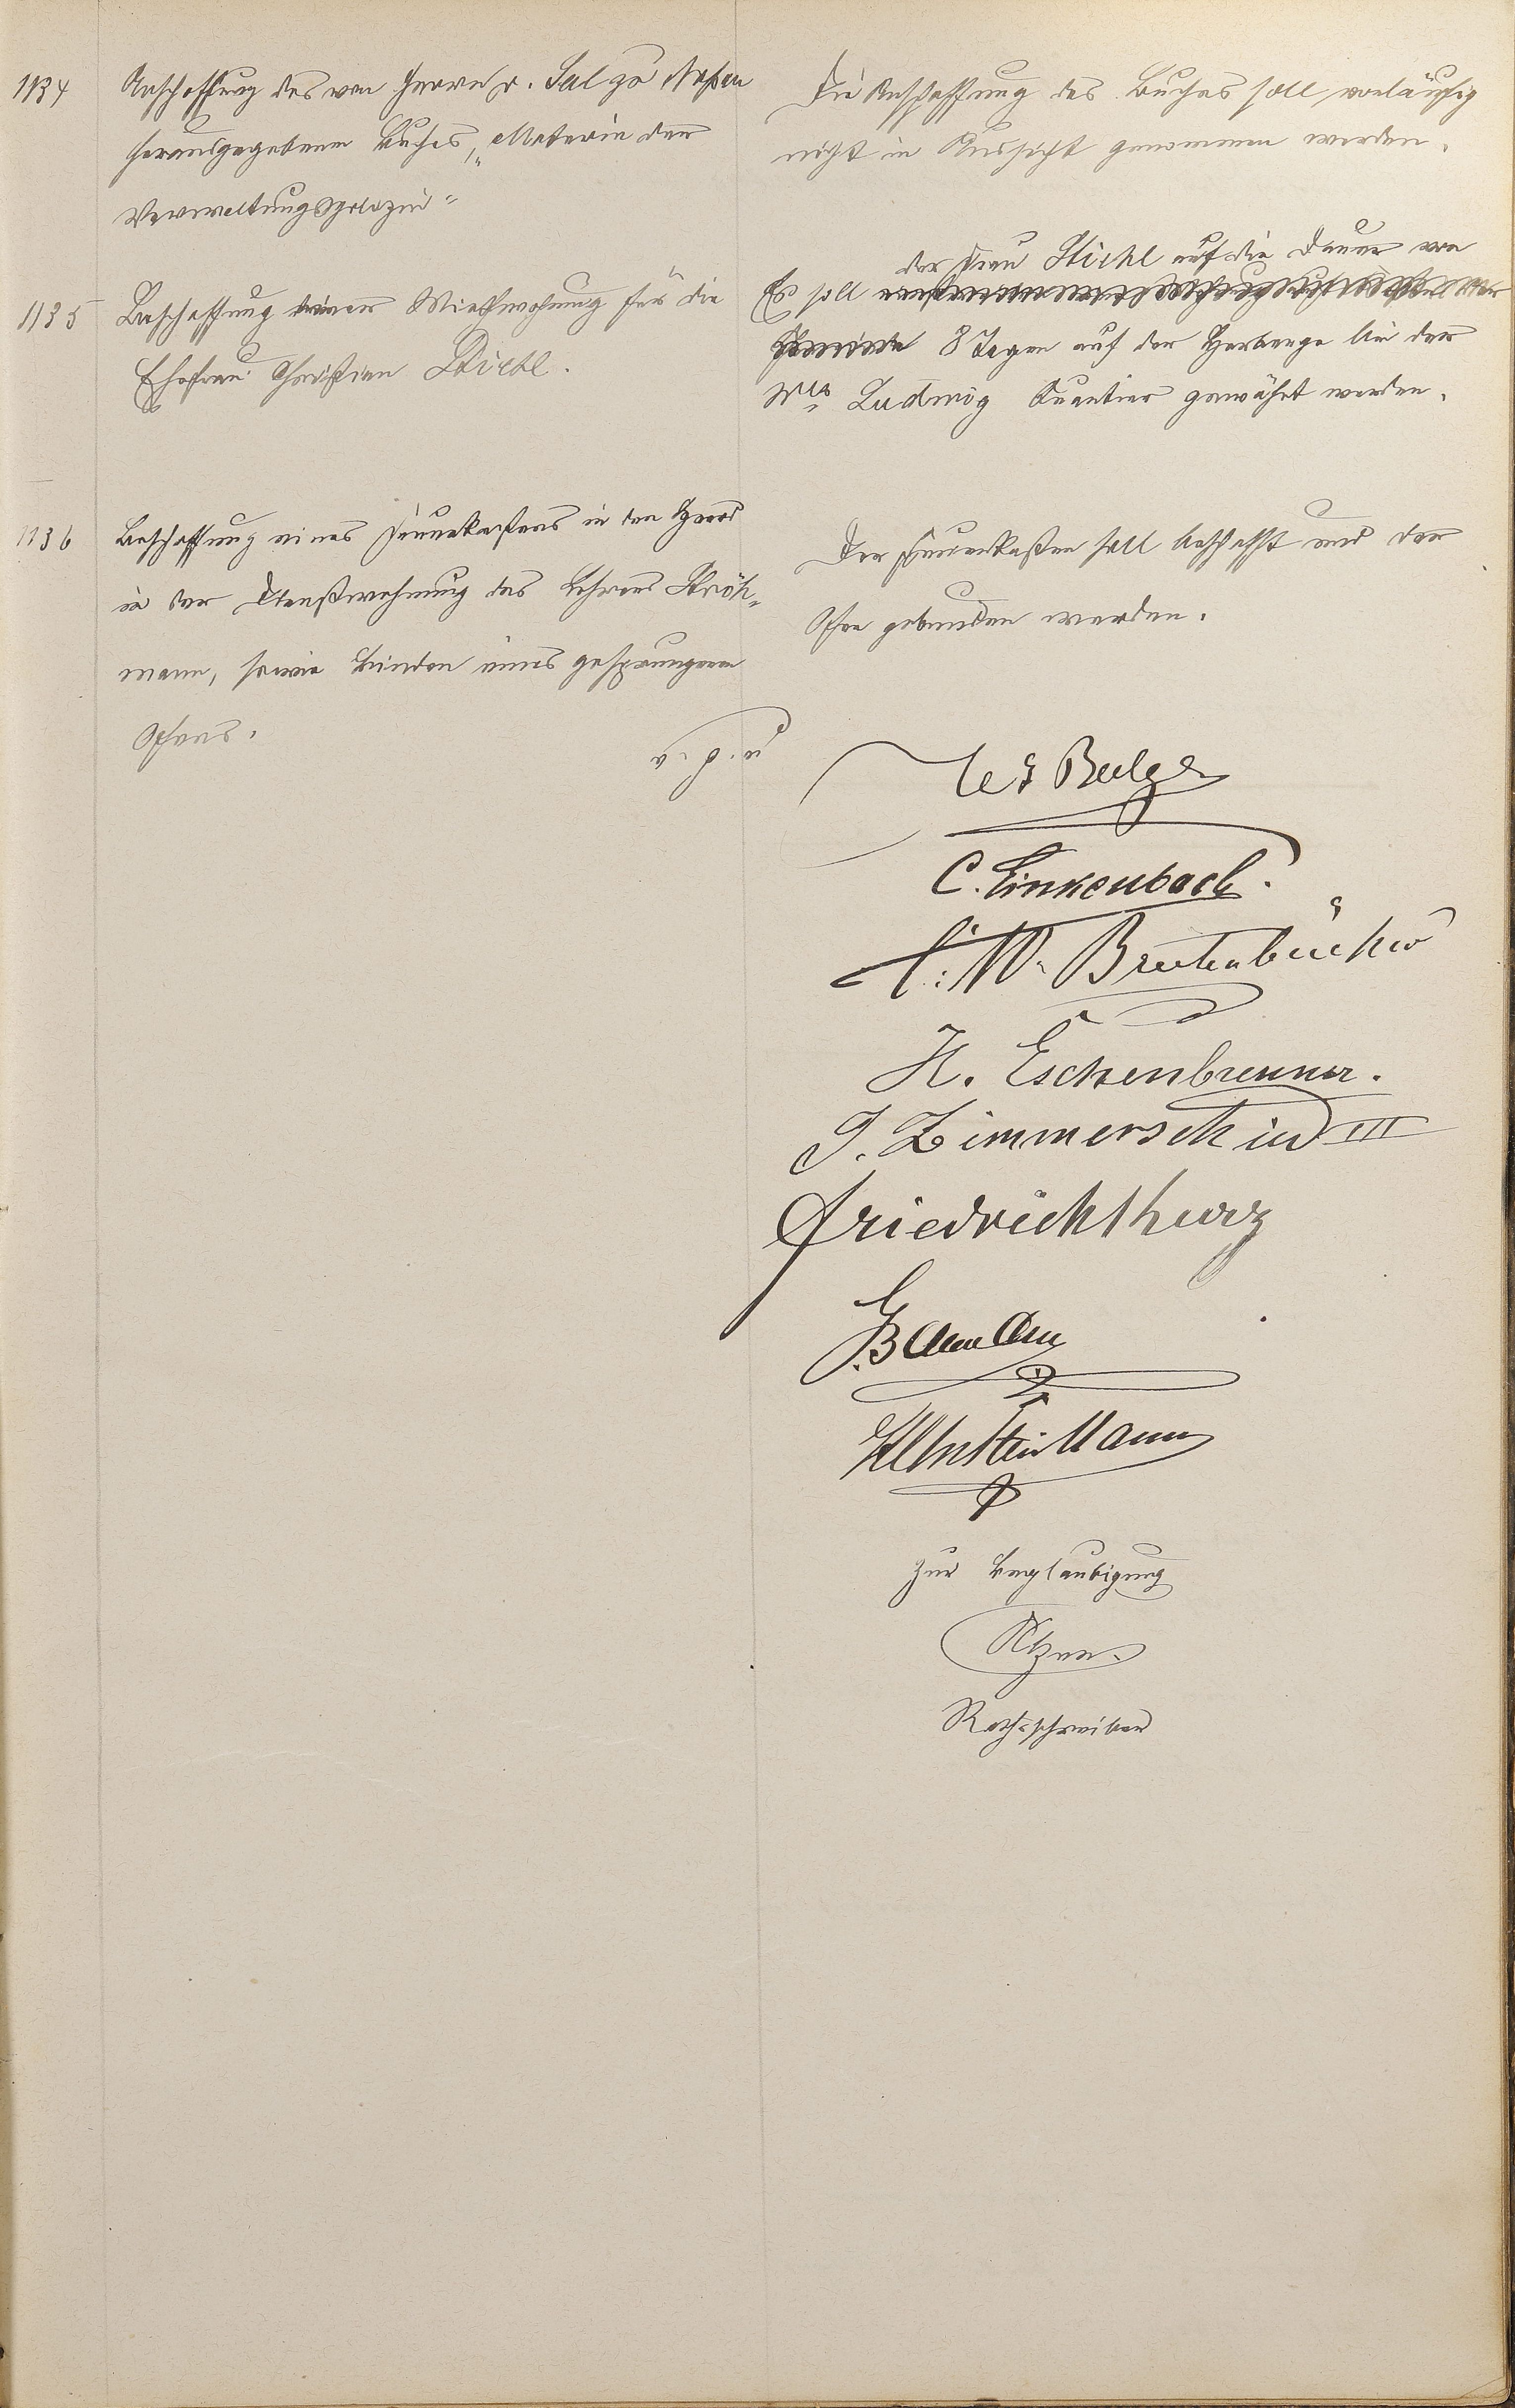 1134
Anschaffung des von Herrn v. Salzo
herausgegebenen Buches, "Materie der
Verwaltungspolizei"
Die Anschaffung des Buches soll vorläufig
nicht in Aussicht genommen werden.
1135
Beschaffung einer Miethwohnung für die
Ehefrau Christian Stiehl.
der Frau Stiehl auf die Dauer von
Es soll
8 Tagen auf der Herberge bei der
Wwe Ludwig Quartier gewährt werden.
1136
Beschaffung eines Feuerkastens in den Herd
in der Dienstwohnung des Lehrers Ströh-
mann, sowie Binden eines gesprungenen
Ofens.
Der Feuerkasten soll beschafft und der
Ofen gebunden werden.
v. g. u
C. Linkenbach.
C. W. Breitenbücher
H. Eschenbrenner.
J. Zimmerschied III
Friedrich Kurz
Baumann
Zur Beglaubigung
Rathsschreiber